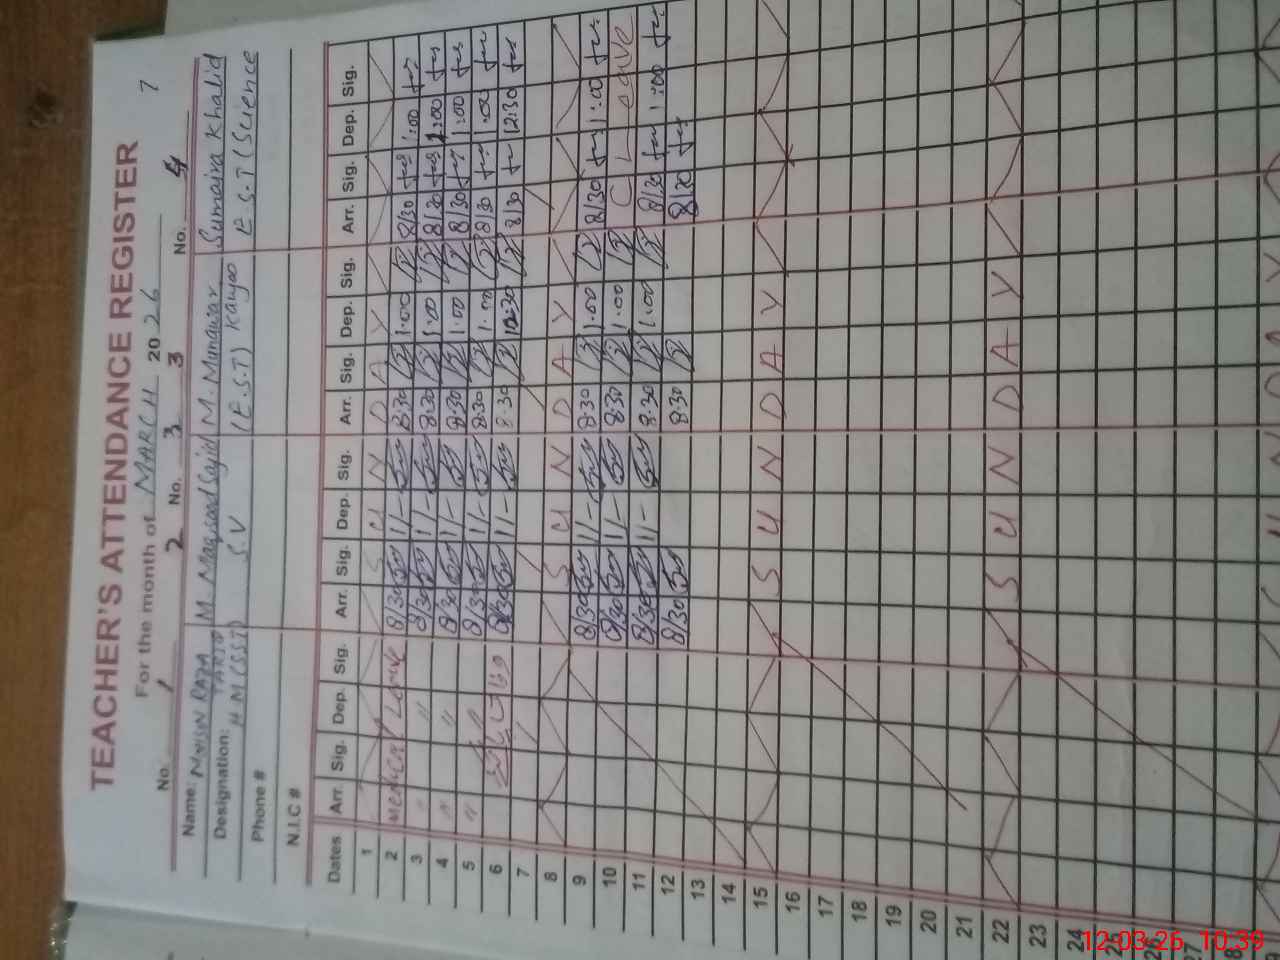 7
TEACHER'S ATTENDANCE REGISTER
For the month of MARCH 2026
No. 1 2 No. 3 3 No. 4
Name: MOHSIN RAZA TARIQ M. Maqsood Sajid M. Munawar Sumaira Khalid
Designation: H M (SST) S.V (E.S.T) E.S.T (Science
Phone #
N.I.C #
Dates Arr. Sig. Dep. Sig. Arr. Sig. Dep. Sig. Arr. Sig. Dep. Sig. Arr. Sig. Dep. Sig.
1 S U N D A Y
2 Medical Leave 8/30 11- 8.30 1.00 8/30 1:00
3 " " 8/30 11- 8.30 1.00 8/30 1:00
4 " " 8/30 11- 8.30 1.00 8/30 1:00
5 " 8/30 11- 8.30 1.00 8/30 1:00
6 8/30 11- 8.30 12.30 8/30 12:30
7
8 S U N D A Y
9 8/30 11- 8.30 1.00 8/30 1:00
10 8/30 11- 8.30 1.00 C Leave
11 8/30 11- 8.30 1.00 8/30 1:00
12 8/30 8.30 8/30
13
14
15 S U N D A Y
16
17
18
19
20
21
22 S U N D A Y
23
24
25
26
27
12-03-26 10:39